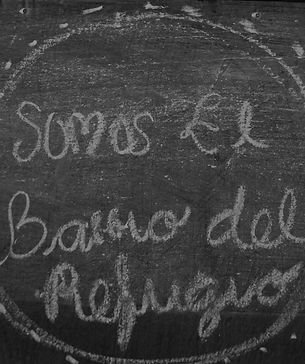 Somos El
Barrio del
Refugio